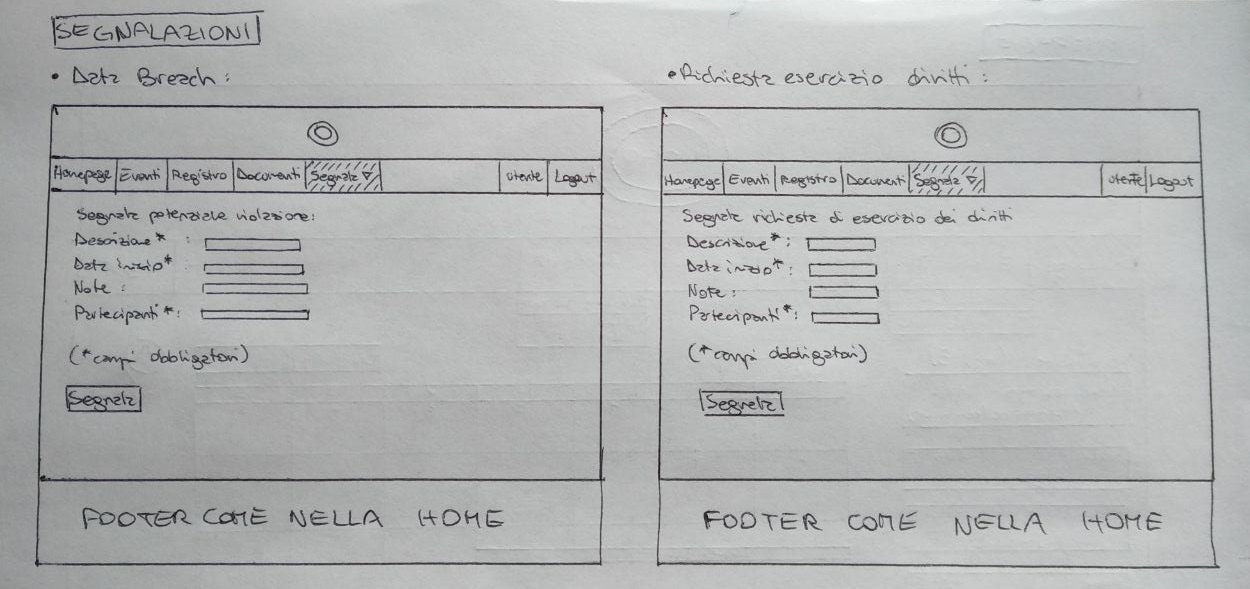 SEGNALAZIONI
• Data Breach:
Homepage Eventi Registro Documenti Segnala ▽ Utente Logout
Segnala potenziale violazione:
Descrizione* :
Data inizio*
Note :
Partecipanti*:
(*campi obbligatori)
Segnala
FOOTER COME NELLA HOME
• Richiesta esercizio diritti:
Homepage Eventi Registro Documenti Segnala ▽ Utente Logout
Segnala richiesta di esercizio dei diritti
Descrizione*:
Data inizio*:
Note:
Partecipanti*:
(*campi obbligatori)
Segnala
FOOTER COME NELLA HOME